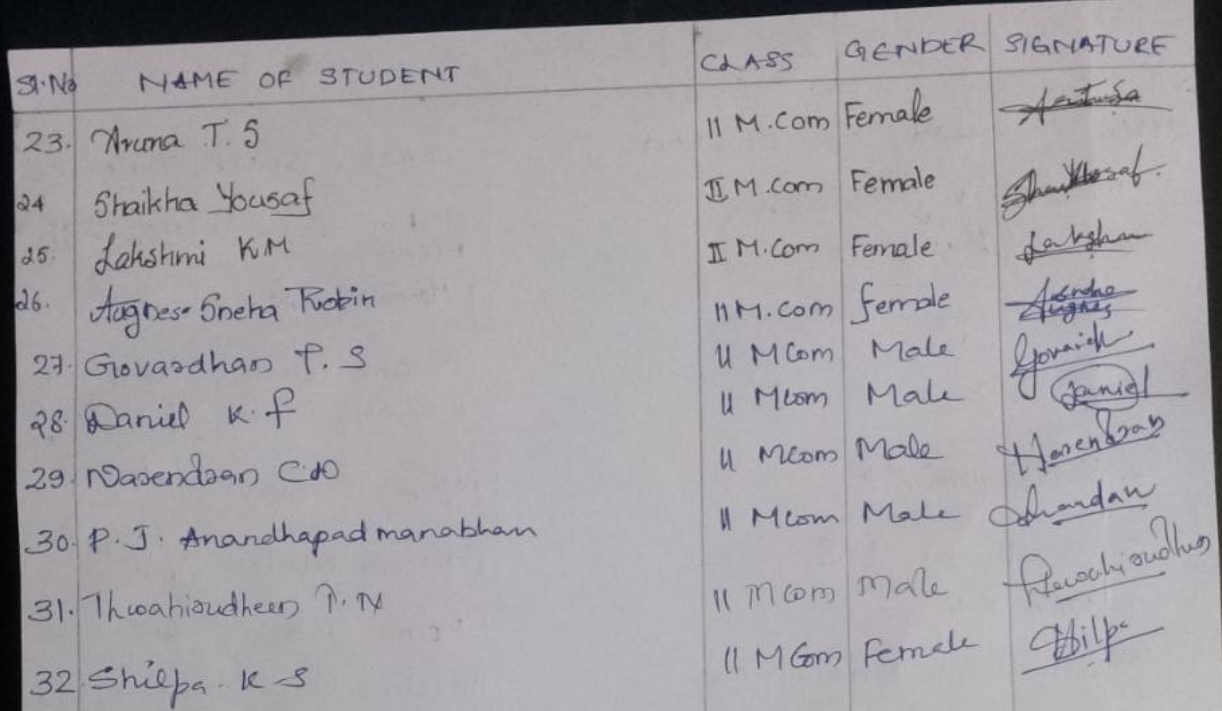 Sl.No NAME OF STUDENT CLASS GENDER SIGNATURE
23. Aruna T. S II M.Com Female
24 Shaikha Yousaf II M.com Female
25. Lakshmi K.M II M.Com Female
26. Augnes Sneha Robin II M.com female Augnes
27. Govardhan P. S II MCom Male
28. Daniel K. P II Mcom Male Daniel
29. Narendran II Mcom Male Narendran
30. P. J. Anandhapadmanabhan II Mcom Male
31. Thwahirudheen P. N II Mcom Male
32. Shilpa. K S II MCom Female Shilpa